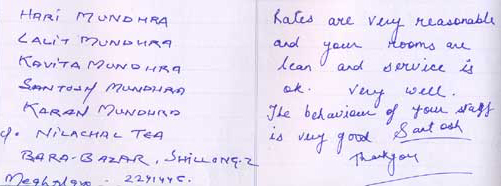 HARI MUNDHRA
LALIT MUNDHRA
KAVITA MUNDHRA
SANTOSH MUNDHRA
KARAN MUNDHRA
c/o. NILACHAL TEA
BARA-BAZAR, SHILLONG-2
Meghalaya. 2241445.
Rates are very reasonable
and your rooms are
lean and service is
ok. very well.
The behaviour of your staff
is very good Santosh
Thankyou